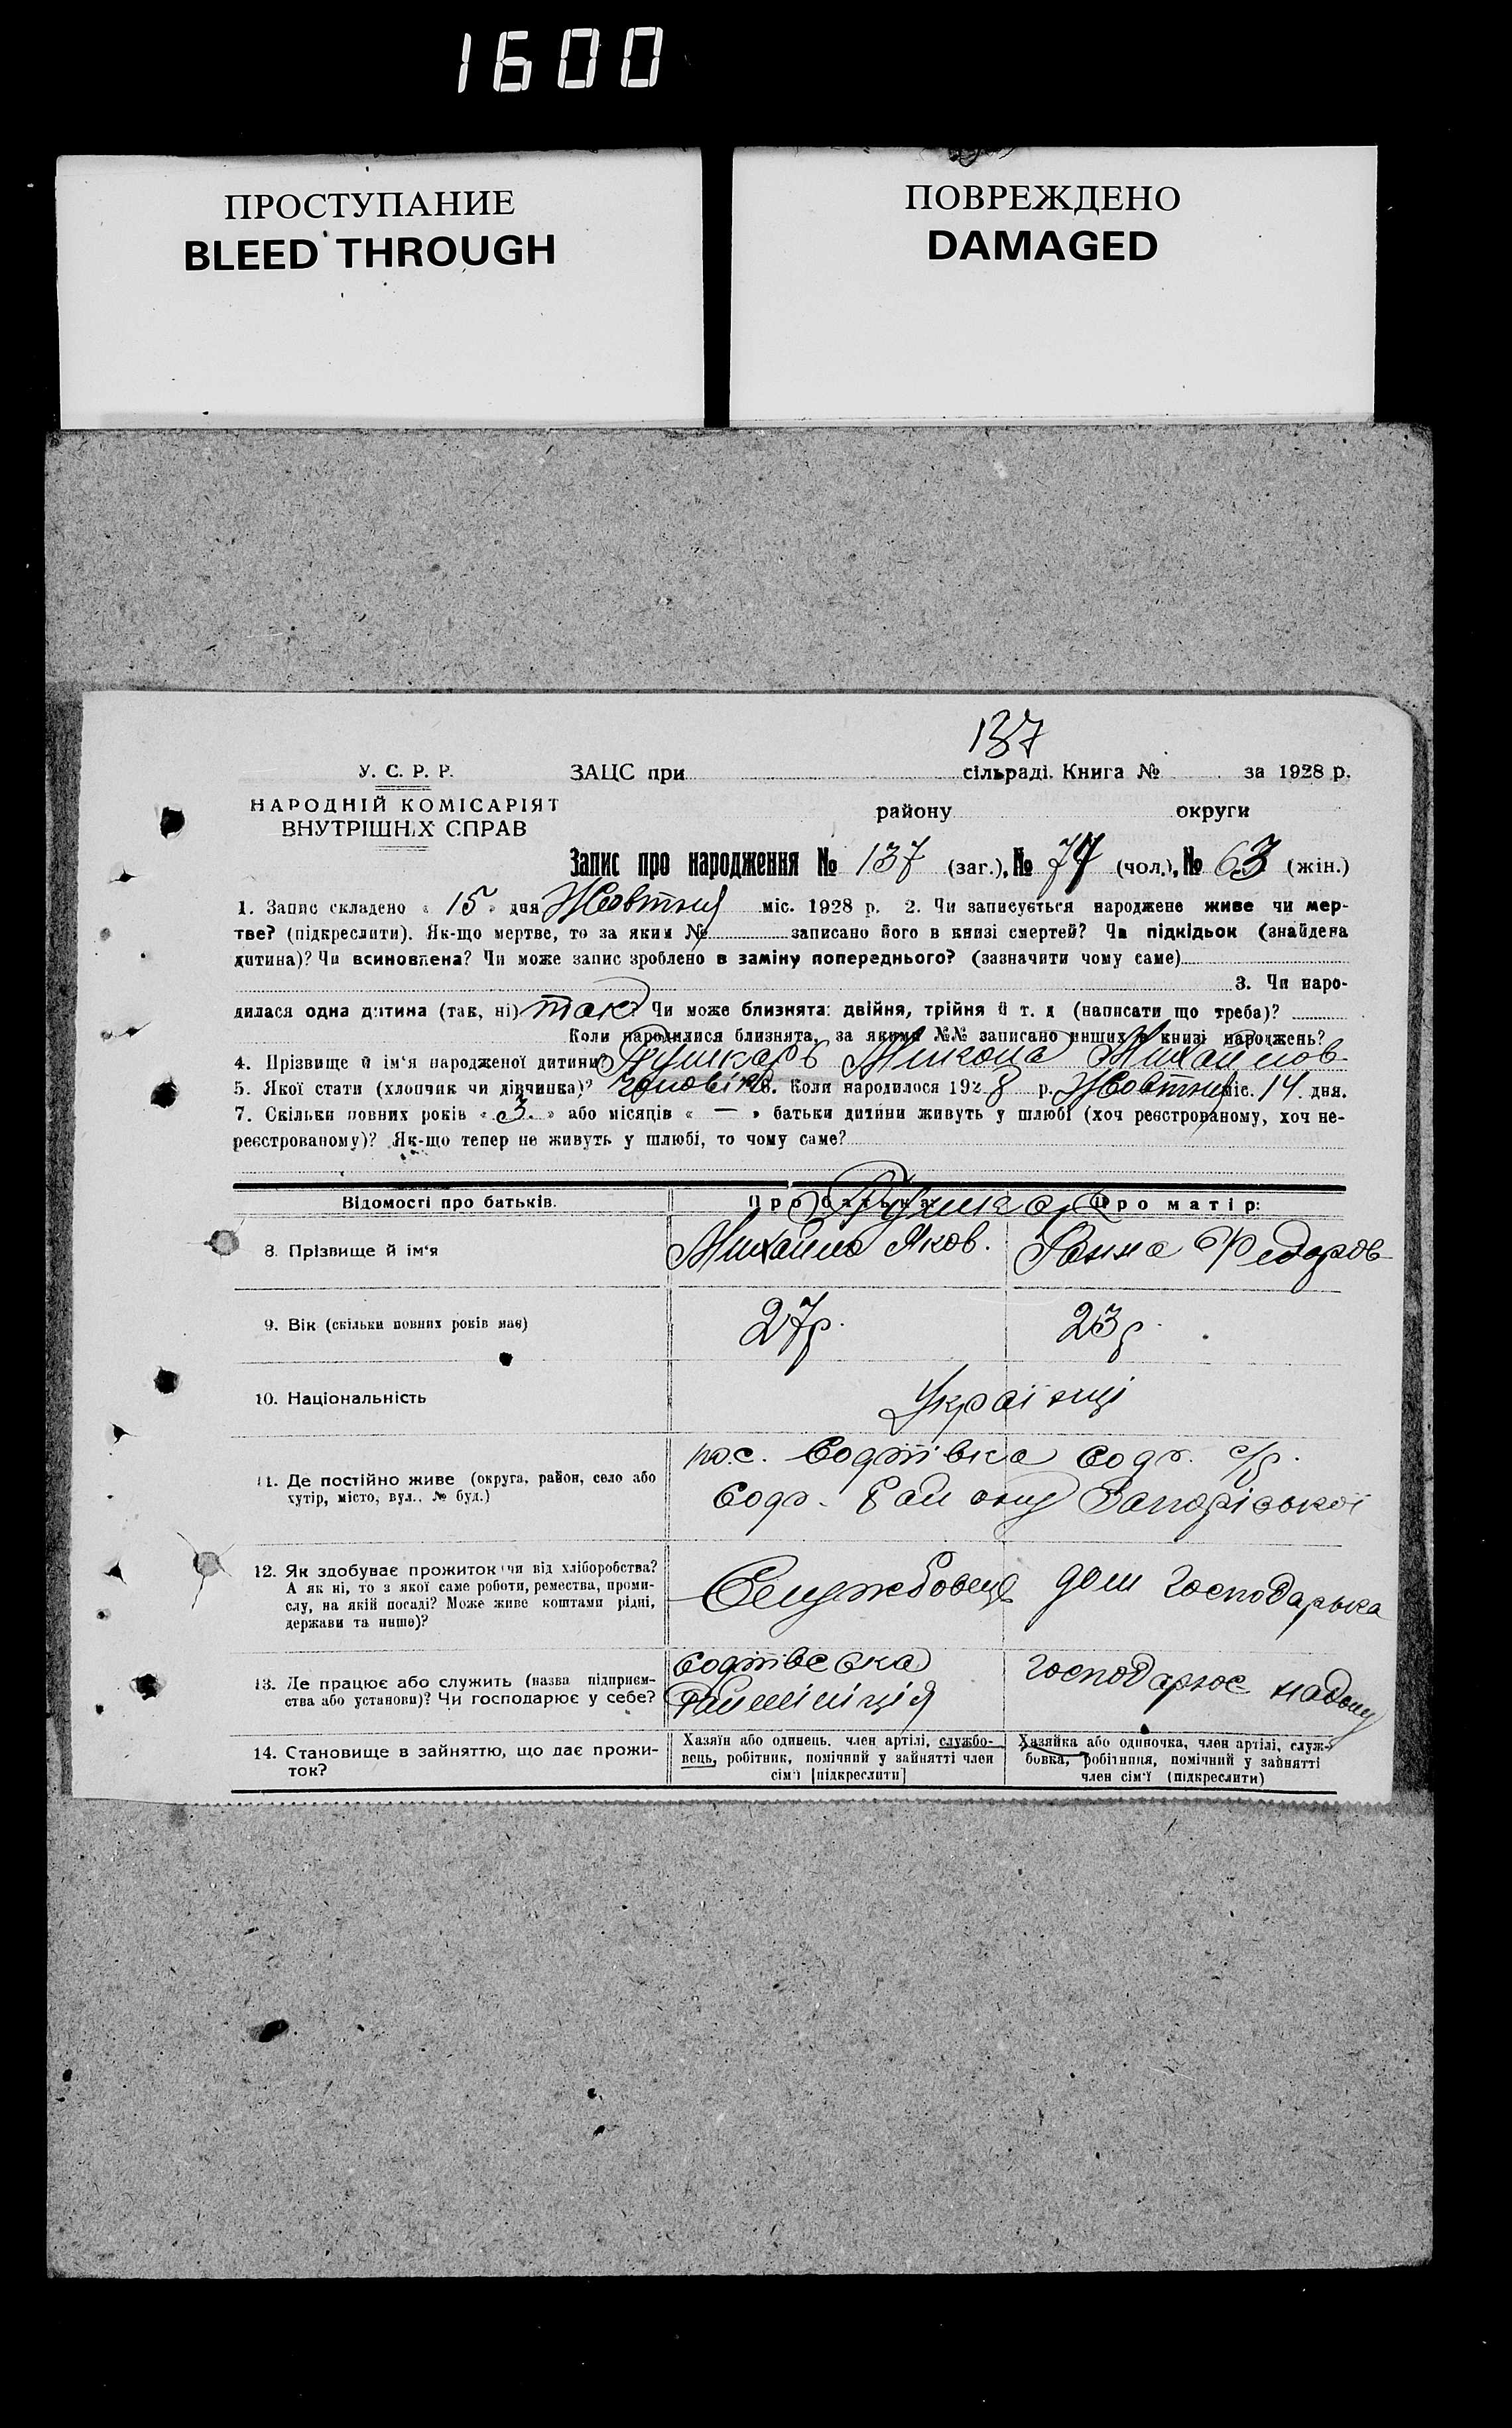 1600
ПРОСТУПАНИЕ
BLEED THROUGH
ПОВРЕЖДЕНО
DAMAGED
137
У. С. Р. Р.
ЗАЦС при сільраді. Книга № за 1928 р.
НАРОДНІЙ КОМІСАРІЯТ
ВНУТРІШНІХ СПРАВ
району округи
Запис про народження № 137 (заг.), № 74 (чол.), № 63 (жін.)
1. Запис складено « 15 » дня Жовтня міс. 1928 р. 2. Чи записується народжене живе чи мер-
тве? (підкреслити). Як-що мертве, то за яким № записано його в книзі смертей? Чи підкідьок (знайдена
дитина)? Чи всиновлена? Чи може запис зроблено в заміну попереднього? (зазначити чому саме)
3. Чи наро-
дилася одна дитина (так, ні) так Чи може близнята: двійня, трійня й т. д (написати що треба)?
Коли народилися близнята, за якими №№ записано инших в книзі народжень?
4. Прізвище й ім‘я народженої дитини? Микола Михайлов
5. Якої стати (хлопчик чи дівчинка)? чоловіка 6. Коли народилося 1928 р. Жовтня міс. 14 дня.
7. Скільки повних років « 3 » або місяців « — » батьки дитини живуть у шлюбі (хоч реєстрованому, хоч не-
реєстрованому)? Як-що тепер не живуть у шлюбі, то чому саме?
Відомості про батьків. Про батька: Про матір:
8. Прізвище й ім‘я Михайло Яков. Ганна Федоров
9. Вік (скільки повних років має) 27р. 23р.
10. Національність Українці
11. Де постійно живе (округа, район, село або
хутір, місто, вул., № буд.)
с/р.
району Запорізької
12. Як здобуває прожиток чи від хліборобства?
А як ні, то з якої саме роботи, ремества, проми-
слу, на якій посаді? Може живе коштами рідні,
держави та инше)?
Службовець дом господарька
13. Де працює або служить (назва підприєм-
ства або установи)? Чи господарює у себе?
Райміліція
господарює надому
14. Становище в зайняттю, що дає прожи-
ток?
Хазяїн або одинець, член артілі, службо-
вець, робітник, помічний у зайнятті член
сім‘ї [підкреслити]
Хазяйка або одиночка, член артілі, служ-
бовка, робітниця, помічний у зайнятті
член сім‘ї (підкреслити)